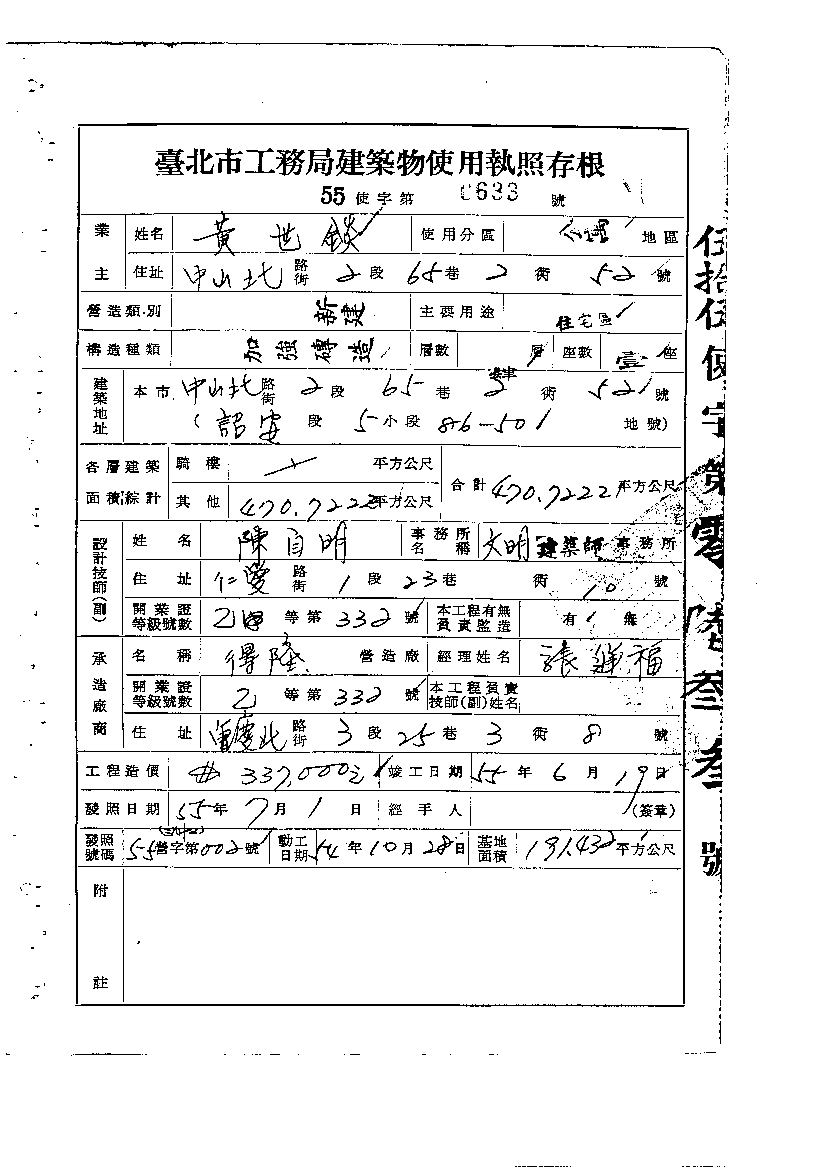 臺北市工務局建築物使用執照存根
55 使字第 0633 號
業主 姓名 黃世錟 使用分區 地區
住址 中山北 路街 2 段 65 巷 2 衖 52 號
營造類別 新建 主要用途 住宅區
構造種類 加強磚造 層數 肆 層 座數 壹 座
建築地址 本市 中山北 路街 2 段 65 巷 2 衖 52 號
( 詔安 段 5 小段 86-501 地號)
各層建築面積綜計 騎樓 平方公尺 合計 470.7222 平方公尺
其他 470.7222 平方公尺
設計技師(副) 姓名 陳自明 事務所名稱 文明建築師 事務所
住址 仁愛 路街 1 段 23 巷 衖 10 號
開業證等級號數 乙 等第 332 號 本工程有無負責監造 有 無
承造廠商 名稱 得隆 營造廠 經理姓名 張 福
開業證等級號數 乙 等第 332 號 本工程負責技師(副)姓名
住址 重慶北 路街 3 段 25 巷 3 衖 8 號
工程造價 337,000元 竣工日期 55 年 6 月 19 日
發照日期 55 年 7 月 1 日 經手人 (簽章)
發照號碼 55 營字第 002 號 動工日期 54 年 10 月 28 日 基地面積 191.432 平方公尺
附註
伍拾伍使字第零陸叁叁號